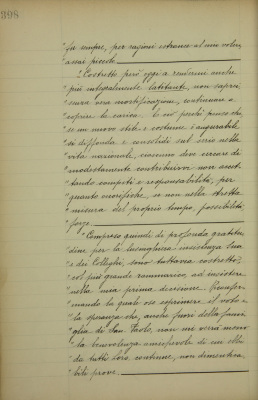 398
"fu sempre, per ragioni estranee al mio volere,
"assai piccola.
"Costretto però oggi a rendermi anche
"più integralmente latitante, non saprei,
"senza una mortificazione, continuare a
"coprire la carica. E ciò perchè penso che,
"se un nuovo stile e costume è augurabile
"si diffonda e consolidi sul serio nella
"vita nazionale, ciascuno deve cercare di
"modestamente contribuirvi non accet-
"tando compiti e responsabilità, per
"quanto onorifiche, se non nella stretta
"misura del proprio tempo, possibilità,
"forze.
"Compreso quindi di profonda gratitu-
"dine per la lusinghiera insistenza Sua
"e dei Colleghi, sono tuttavia costretto,
"col più grande rammarico, ad insistere
"nella mia prima decisione. Riconfer-
"mando la quale oso esprimere il voto e
"la speranza che, anche fuori della fami-
"glia di San Paolo, non mi verrà meno
"la benevolenza amichevole di cui ebbi
"da tutti Loro, continue, non dimentica-
"bili prove.